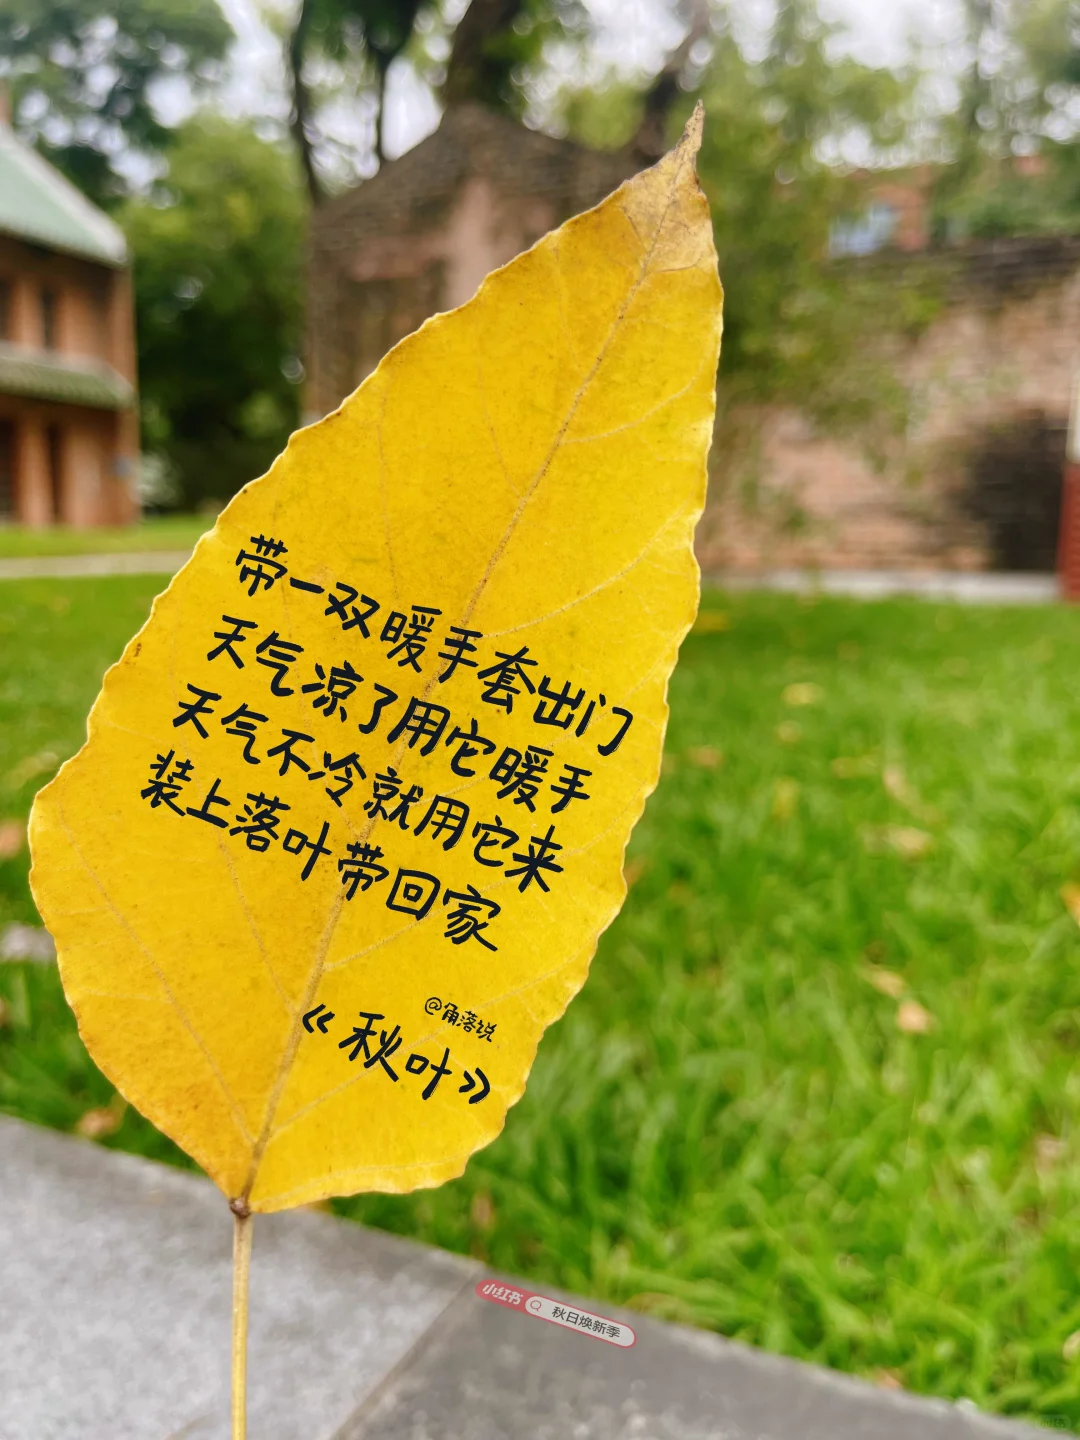 带一双暖手套出门
天气凉了用它暖手
天气不冷就用它来
装上落叶带回家
@角落说
《秋叶》
小红书 秋日焕新季